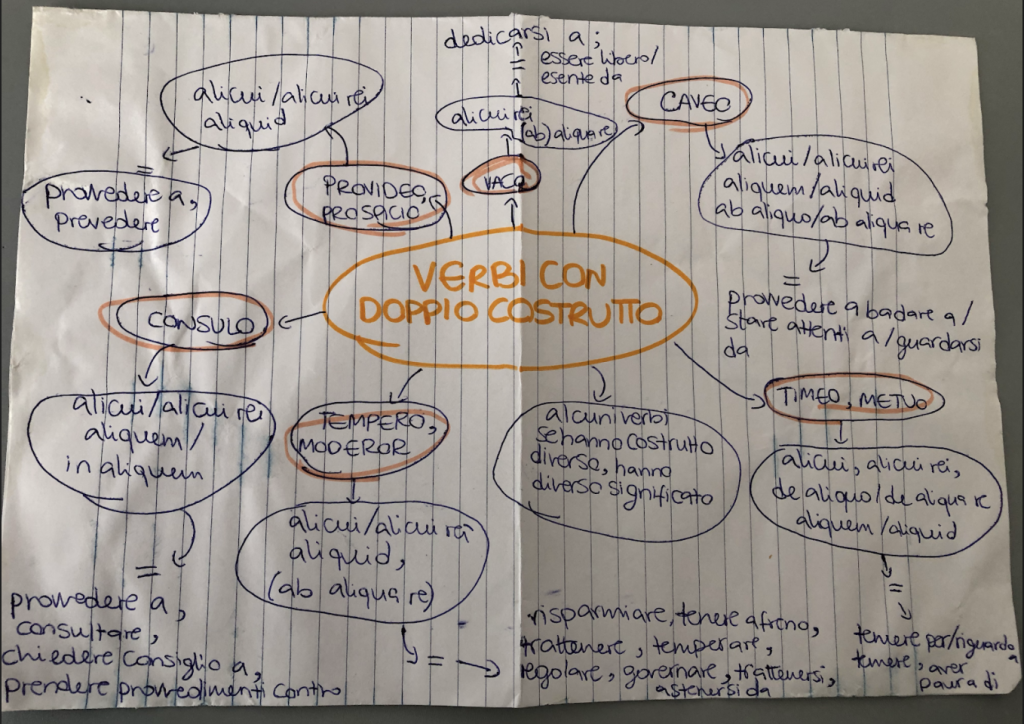 VERBI CON
DOPPIO COSTRUTTO
alicui/alicui rei
aliquid
=
provvedere a,
prevedere
PROVIDEO,
PROSPICIO
dedicarsi a;
=
essere libero/
esente da
alicui rei
(ab) aliqua re
VACO
CAVEO
alicui/alicui rei
aliquem/aliquid
ab aliquo/ab aliqua re
=
provvedere a badare a/
stare attenti a/guardarsi
da
CONSULO
alicui/alicui rei
aliquem/
in aliquem
=
provvedere a,
consultare,
chiedere consiglio a,
prendere provvedimenti contro
TEMPERO,
MODEROR
alicui/alicui rei
aliquid,
(ab aliqua re)
=
risparmiare, tenere a freno,
trattenere, temperare,
regolare, governare, trattenersi,
astenersi da
alcuni verbi
se hanno costrutto
diverso, hanno
diverso significato
TIMEO, METUO
alicui, alicui rei,
de aliquo/de aliqua re
aliquem/aliquid
=
temere per/riguardo a
temere, aver
paura di